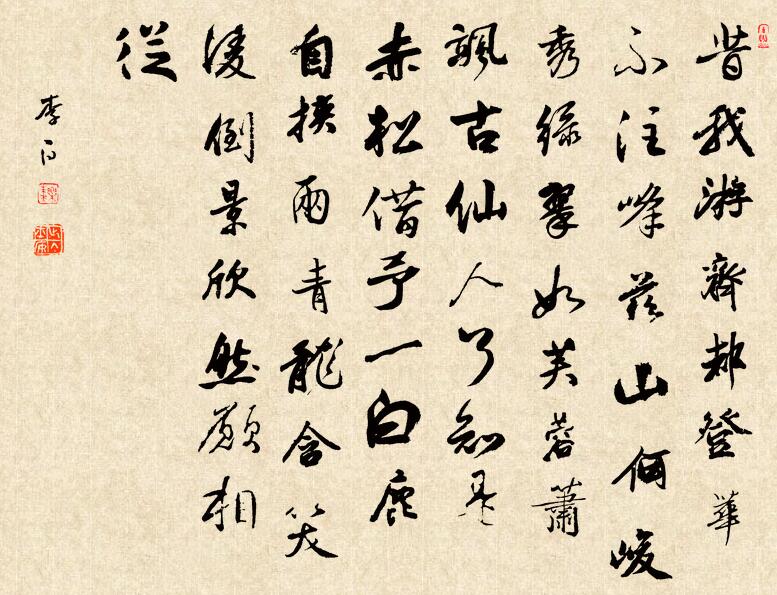 昔我游齊都登華
不注峰茲山何峻
秀綠翠如芙蓉蕭
颯古仙人了知是
赤松借予一白鹿
自挾兩青龍含笑
凌倒景欣然願相
從
李白